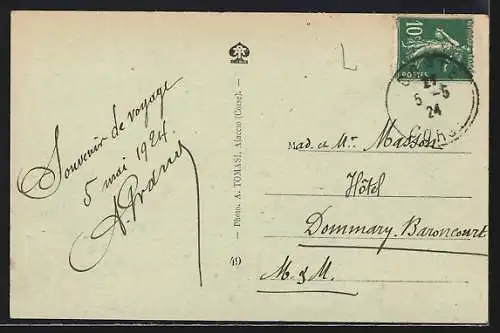 Souvenir de voyage
5 mai 1924
49 — Photo. A. TOMASI, Ajaccio (Corse). —
10c
POSTES
5 -5
24
Mad. et Mr. Masson
Hôtel
Dommary-Baroncourt
M. & M.